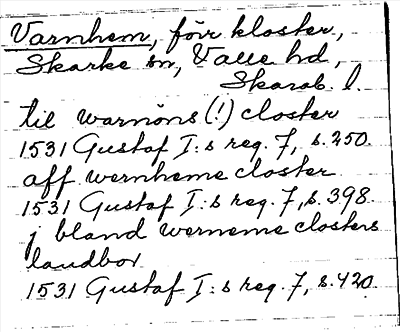 Varnhem, förr kloster,
Skarke sn, Valle hd,
Skarab. l.
til warnöns (!) closter
1531 Gustaf I:s reg. 7, s. 250.
aff wernheme closter
1531 Gustaf I:s reg. 7, s. 398.
j bland werneme closters
landbor
1531 Gustaf I:s reg. 7, s. 420.